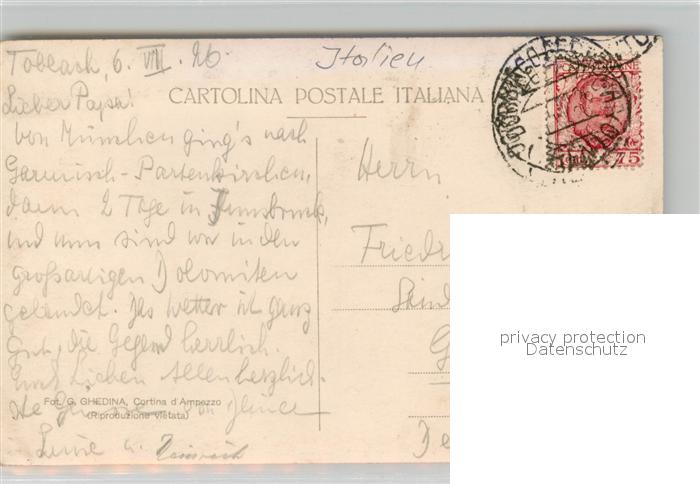 Toblach, 6. VIII. 26.
Italien
Lieber Papa!
CARTOLINA POSTALE ITALIANA
Von München ging's nach
Garmisch-Partenkirchen,
dann 2 Tage in Innsbruck,
und nun sind wir in den
großartigen Dolomiten
gelandet. Das Wetter ist ganz
gut, die Gegend herrlich.
Euch Lieben allen herzlich-
ste Grüsse von Deiner
Fot. G. GHEDINA, Cortina d'Ampezzo
(Riproduzione vietata)
u. Heinrich
75
Herrn
Friedr
G
privacy protection
Datenschutz